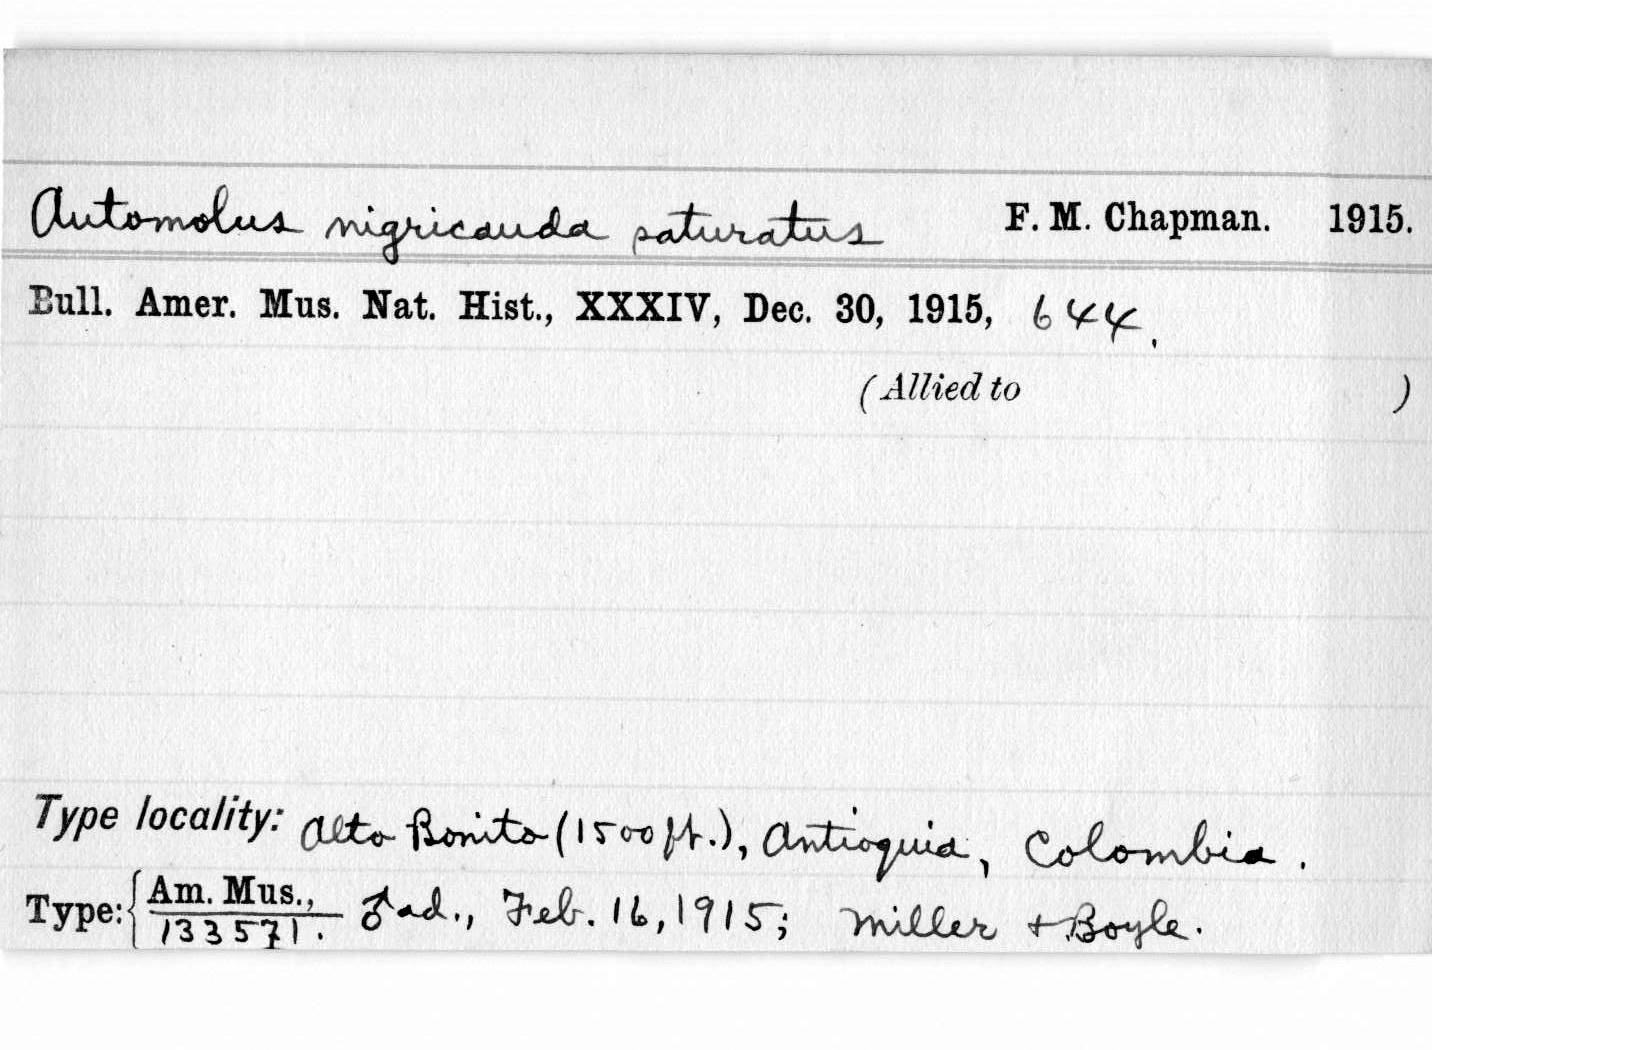 Automolus nigricauda saturatus F. M. Chapman. 1915.
Bull. Amer. Mus. Nat. Hist., XXXIV, Dec. 30, 1915, 644.
(Allied to )
Type locality: Alto Bonito (1500 ft.), Antioquia, Colombia.
Type: { Am. Mus., 133571. ♂ ad., Feb. 16, 1915; Miller + Boyle.